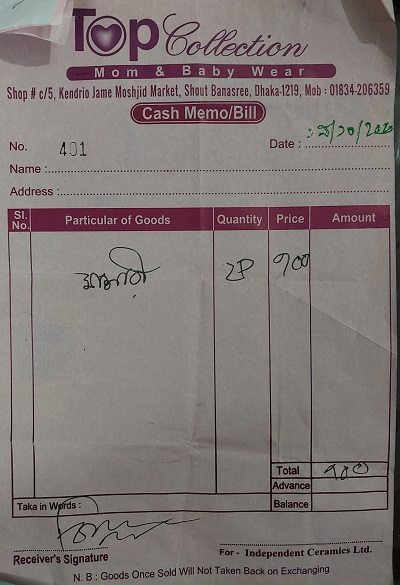 Top Collection
Mom & Baby Wear
Shop # c/5, Kendrio Jame Moshjid Market, Shout Banasree, Dhaka-1219, Mob : 01834-206359
Cash Memo/Bill
No. 401 Date :
Name :
Address :
Sl. No. Particular of Goods Quantity Price Amount
2P ৭০০
Total ৭০০
Advance
Taka in Words : Balance
Receiver's Signature For - Independent Ceramics Ltd.
N. B : Goods Once Sold Will Not Taken Back on Exchanging